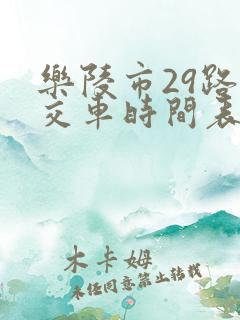 樂陵市29路
交車時間表
木卡姆
未經同意禁止轉載